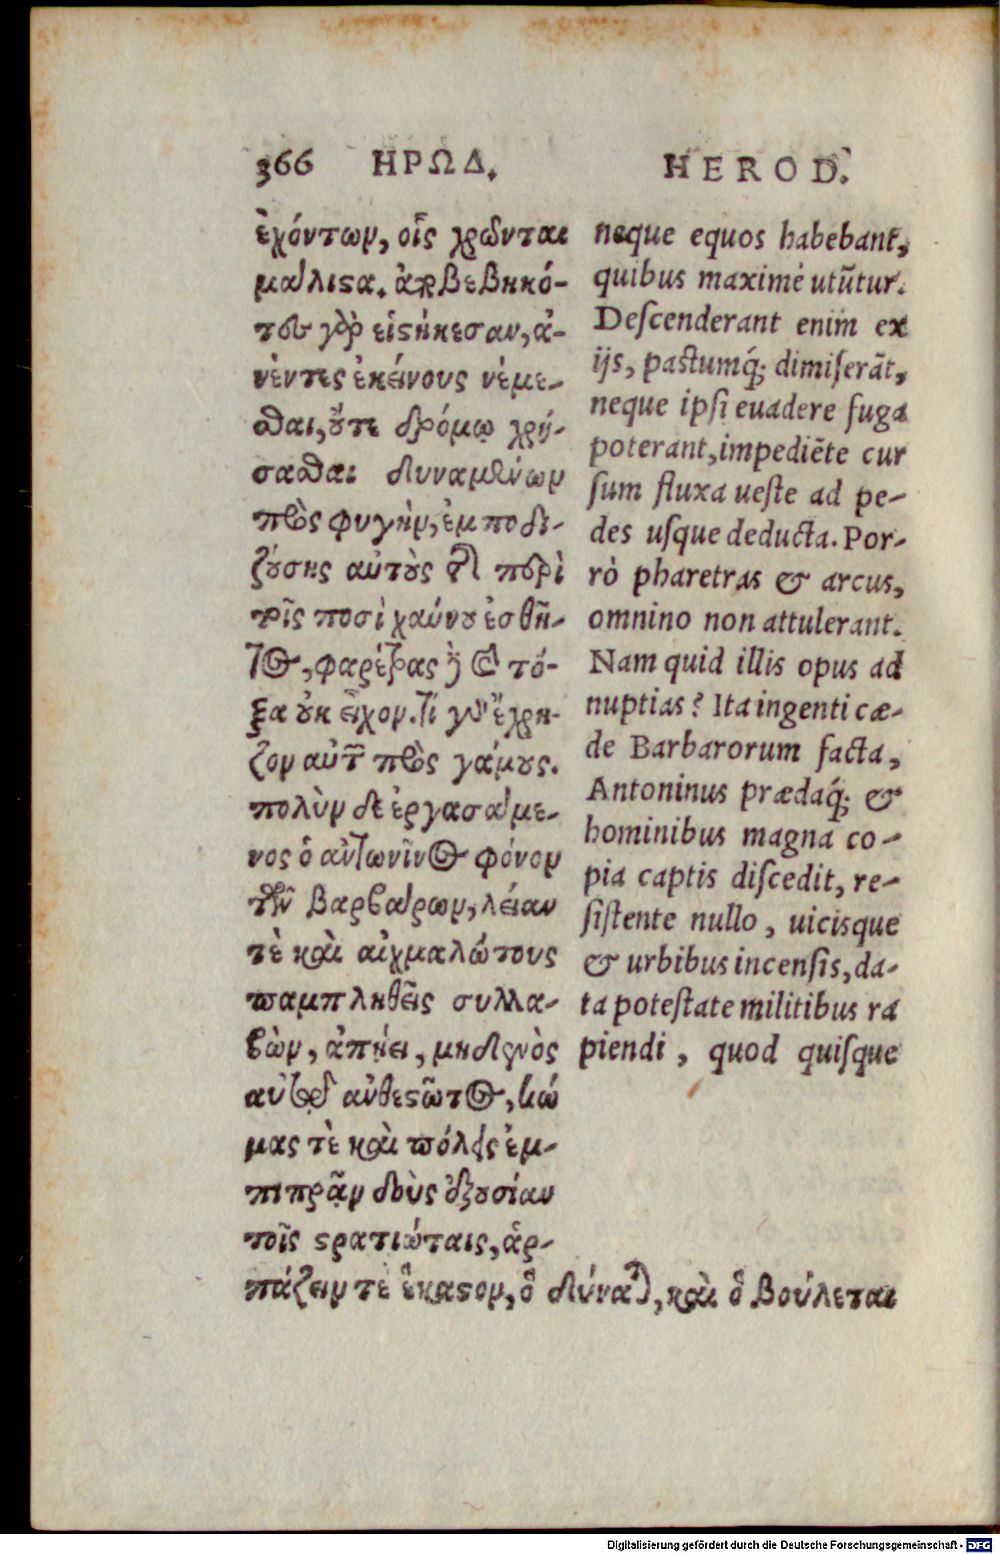 366 ΗΡΩΔ. HEROD.
ἐχόντων, οἷς χρῶνται
μάλιστα. ἀποβεβηκό-
τες γὰρ εἱστήκεσαν, ἀ-
νέντες ἐκείνους νέμε-
σθαι, οὔτε δρόμῳ χρή-
σασθαι δυναμένων
πρὸς φυγὴν, ἐμποδι-
ζούσης αὐτοὺς τῆς περὶ
τοῖς ποσὶ χαύνου ἐσθῆ-
τος, φαρέτρας δὲ καὶ τό-
ξα οὐκ εἶχον. τί γὰρ ἔχρη-
ζον αὐτῶν πρὸς γάμους.
πολὺν δὲ ἐργασάμε-
νος ὁ αντωνῖνος φόνον
τῶν βαρβάρων, λείαν
τὲ καὶ αἰχμαλώτους
παμπληθεῖς συλλα-
βὼν, ἀπῄει, μηδενὸς
αὐτῷ ἀνθεστῶτος, κώ
μας τὲ καὶ πόλεις ἐμ-
πιπρᾷν δοὺς ἐξουσίαν
τοῖς στρατιώταις, ἁρ-
πάζειν τὲ ἕκαστον, ὃ δύναται, καὶ ὃ βούλεται
neque equos habebant,
quibus maximè utũtur.
Deſcenderant enim ex
ijs, paſtumq́; dimiſerãt,
neque ipſi euadere fuga
poterant, impediẽte cur
ſum fluxa ueſte ad pe-
des uſque deducta. Por-
rò pharetras & arcus,
omnino non attulerant.
Nam quid illis opus ad
nuptias? Ita ingenti cæ-
de Barbarorum facta,
Antoninus prædaq́; &
hominibus magna co-
pia captis diſcedit, re-
ſiſtente nullo, uicisque
& urbibus incenſis, da-
ta poteſtate militibus ra
piendi, quod quiſque
Digitalisierung gefördert durch die Deutsche Forschungsgemeinschaft - DFG